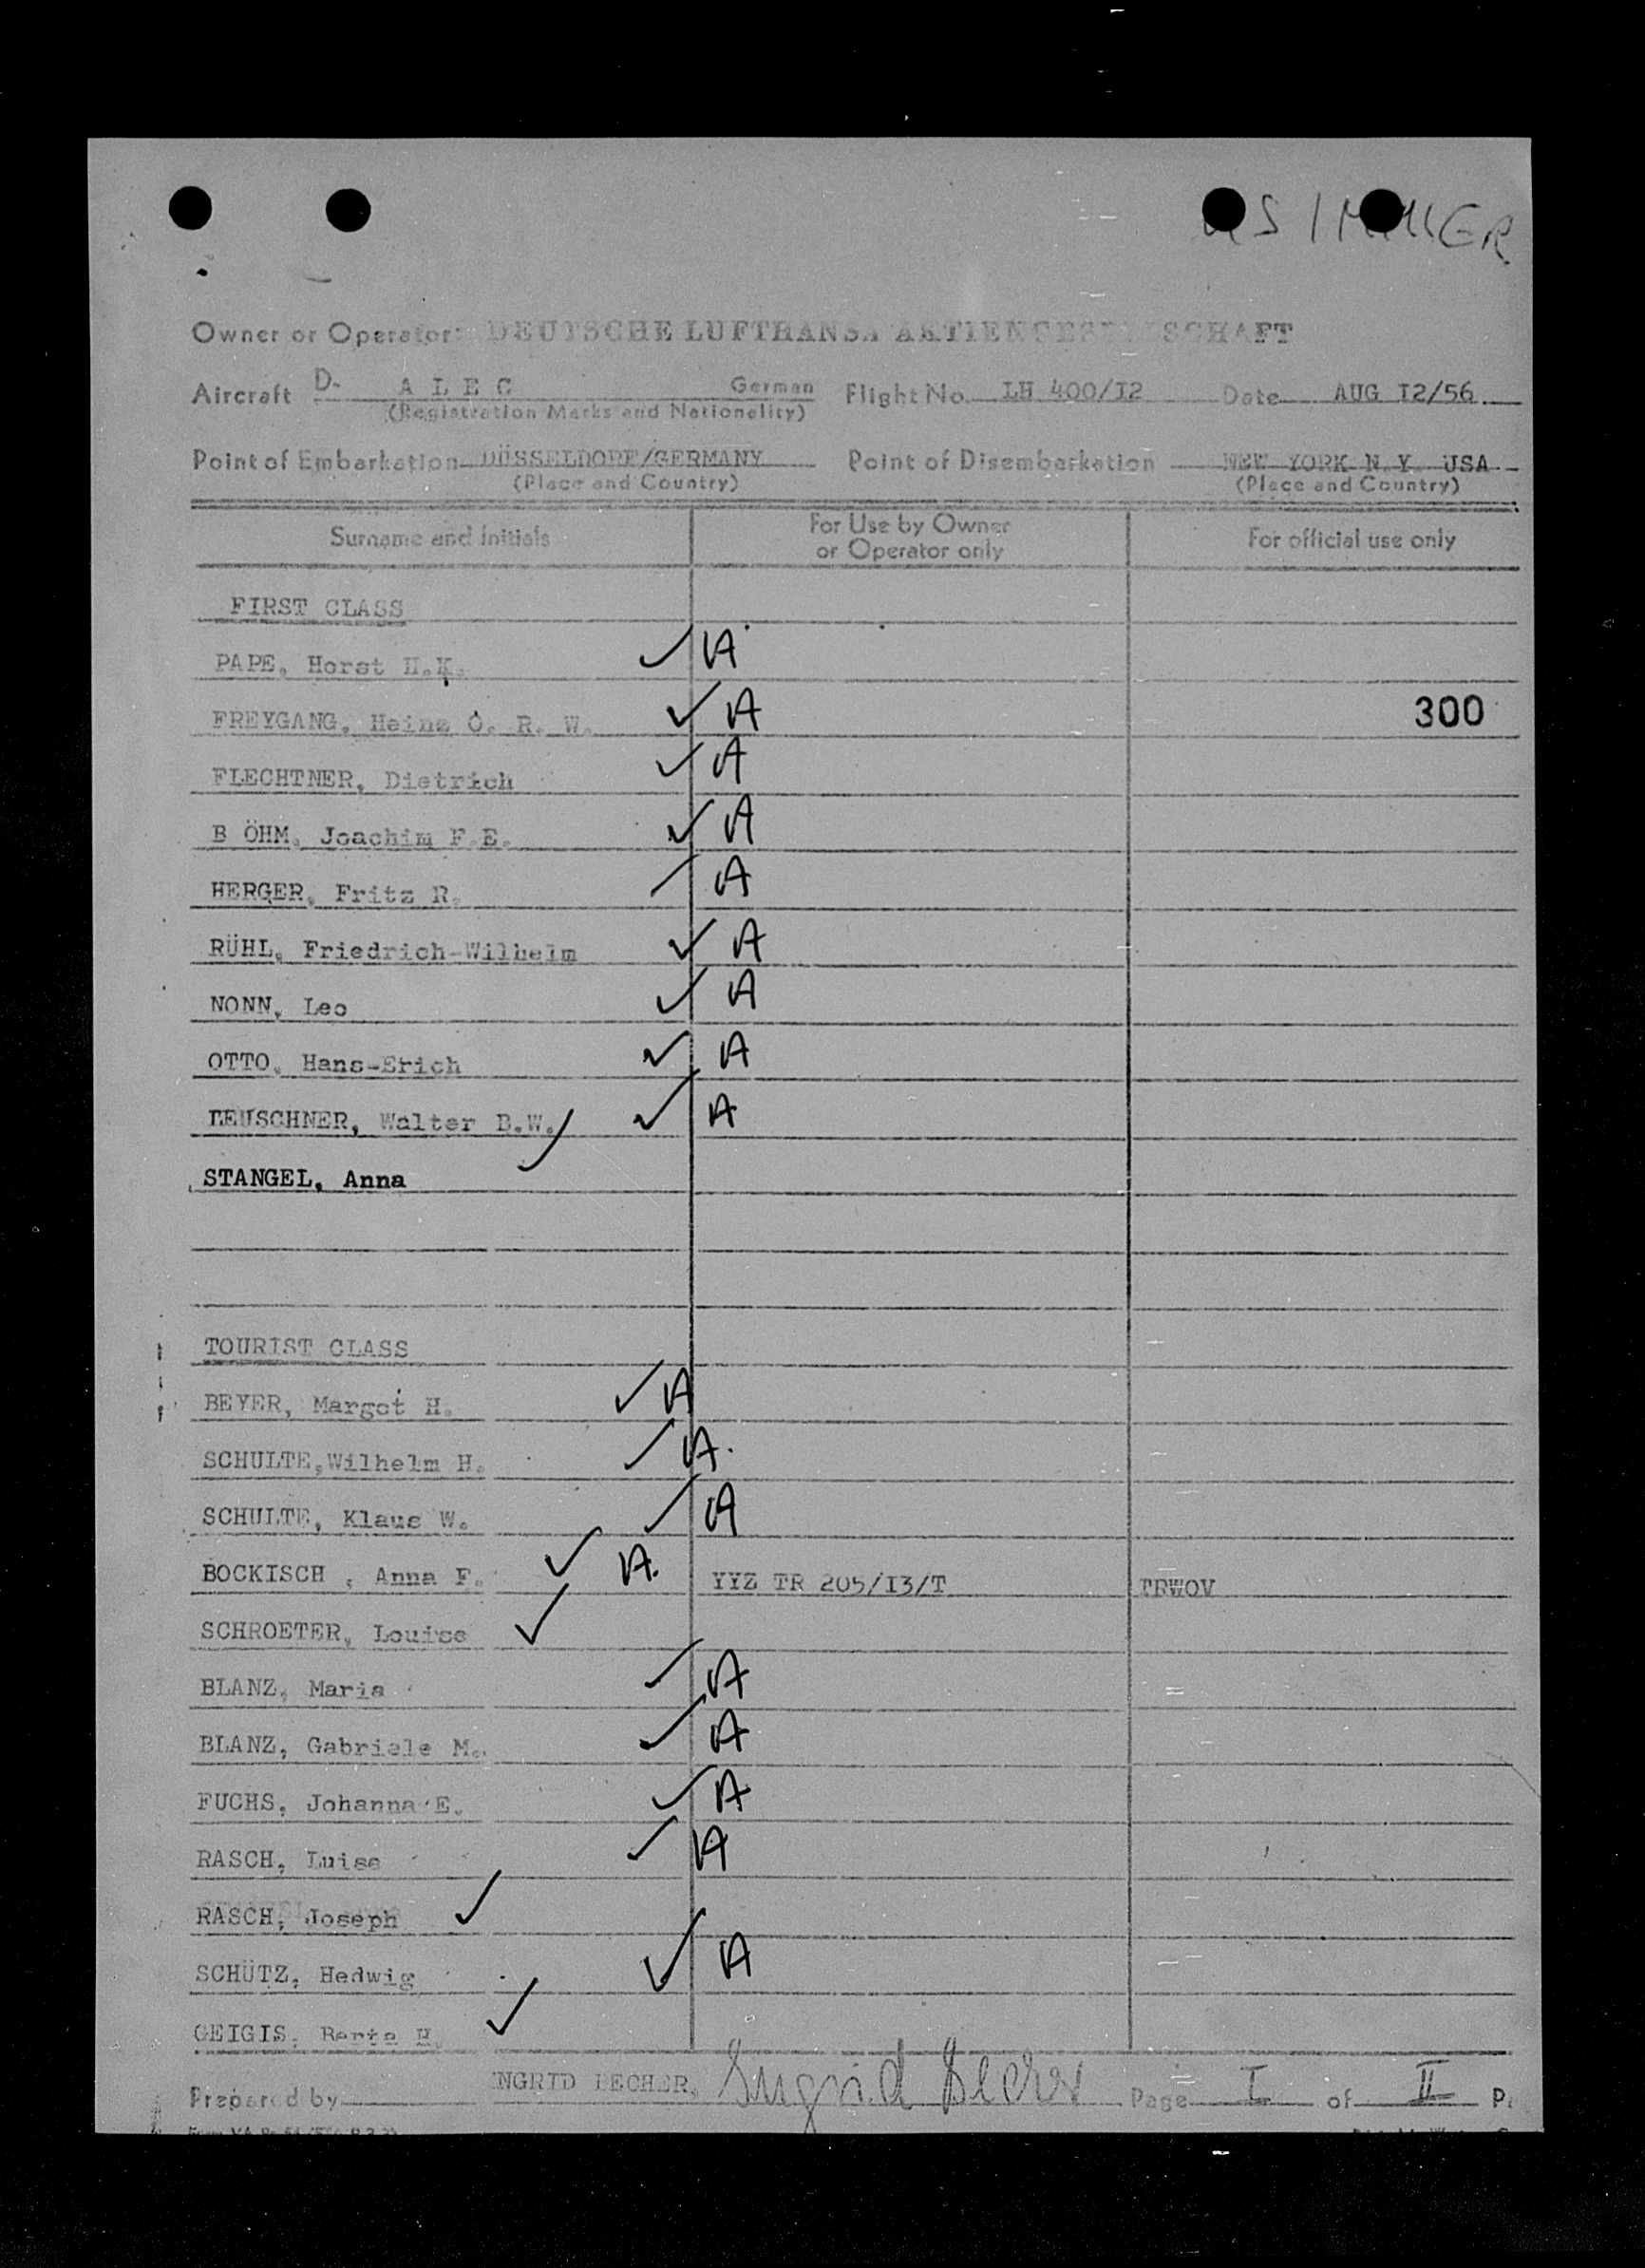 Owner or Operator: DEUTSCHE LUFTHANSA AKTIENGESELLSCHAFT
Aircraft D- A L E C German Flight No. LH 400/I2 Date AUG I2/56
(Registration Marks and Nationality)
Point of Embarkation DÜSSELDORF/GERMANY Point of Disembarkation NEW YORK N.Y. USA
(Place and Country) (Place and Country)
Surname and initials For Use by Owner or Operator only For official use only
FIRST CLASS
PAPE, Horst H.K. ✓ A
FREYGANG, Heinz O. R. W. ✓ A 300
FLECHTNER, Dietrich ✓ A
B ÖHM, Joachim F.E. ✓ A
HERGER, Fritz R. ✓ A
RÜHL, Friedrich-Wilhelm ✓ A
NONN, Leo ✓ A
OTTO, Hans-Erich ✓ A
LEUSCHNER, Walter B.W. ✓ A
STANGEL, Anna ✓
TOURIST CLASS
BEYER, Margot H. ✓ A
SCHULTE,Wilhelm H. ✓ A.
SCHULTE, Klaus W. ✓ A
BOCKISCH , Anna F. ✓ A. YYZ TR 205/I3/T TRWOV
SCHROETER, Louise ✓
BLANZ, Maria ✓ A
BLANZ, Gabriele M. ✓ A
FUCHS, Johanna E. ✓ A
RASCH, Luise ✓ A
RASCH, Joseph ✓
SCHÜTZ, Hedwig ✓ A
GEIGIS, Berta H. ✓
Prepared by INGRID BECHER, Ingrid Becher Page I of II